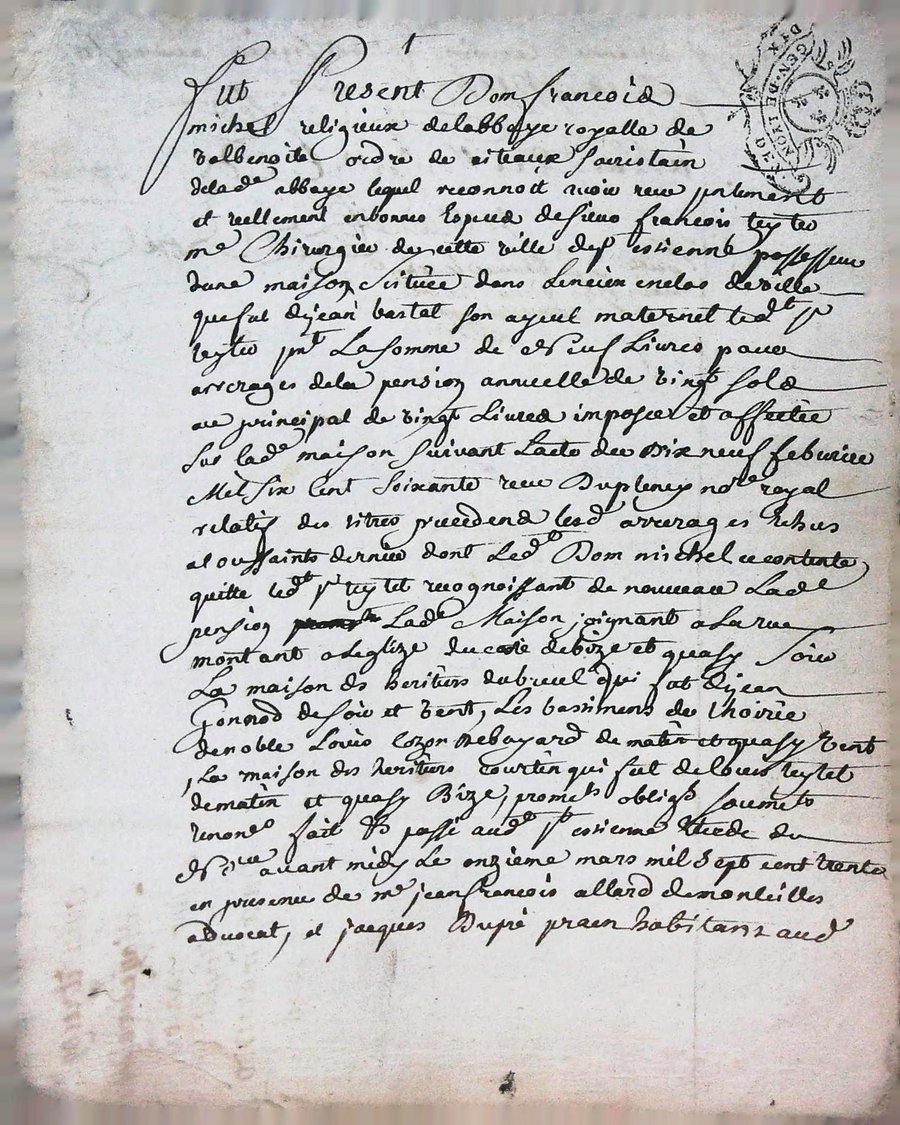 GEN. DE
DIX
Fut Present Dom francois
michel religieux delabbaye royalle de
valbenoite ordre de citeaux sacristain
delade abbaye lequel reconnoit avoir receu
et reellement en bonnes especes de sieur françois teyter
me Chirurgien de cette ville de st estienne possesseur
dune maison Scituée dans Lencien enclos de ville
que fut dejean bastat son ayeul maternel ledt sr
teyter pnt La somme de Neuf Livres pour
arrerages dela pension annuelle de vingt sols
au principal de vingt Livres imposée et affectée
sur lade maison suivant Lacte du Dix neuf feburier
Mil Six Cent Soixante receu Dupleney nore royal
relatif des titres precedens lesd arrerages echus
a toussaints dernier dont Ledt Dom michel se contente
quitte ledt sr teytet recognoissant de nouveau Lade
pension Lade Maison joignant a La rue
montant a Leglize du coté de bize et quasy soir
La maison des heritiers dubreuil qui fut dejean
Gonnod de soir et vent, Les bastimens de lhoirie
denoble Louis cozon de bayard de matin et quasy vent
, La maison des heritiers courtin qui fut de louis teytet
de matin et quasy Bize, promets obligs soumets
renonce fait et passé audt st estienne etude du
nore avant midy Le onzieme mars mil sept cent trente
en presence de me jean françois allard demonteilles
advocat, et jacques Dupré praen habitans aud